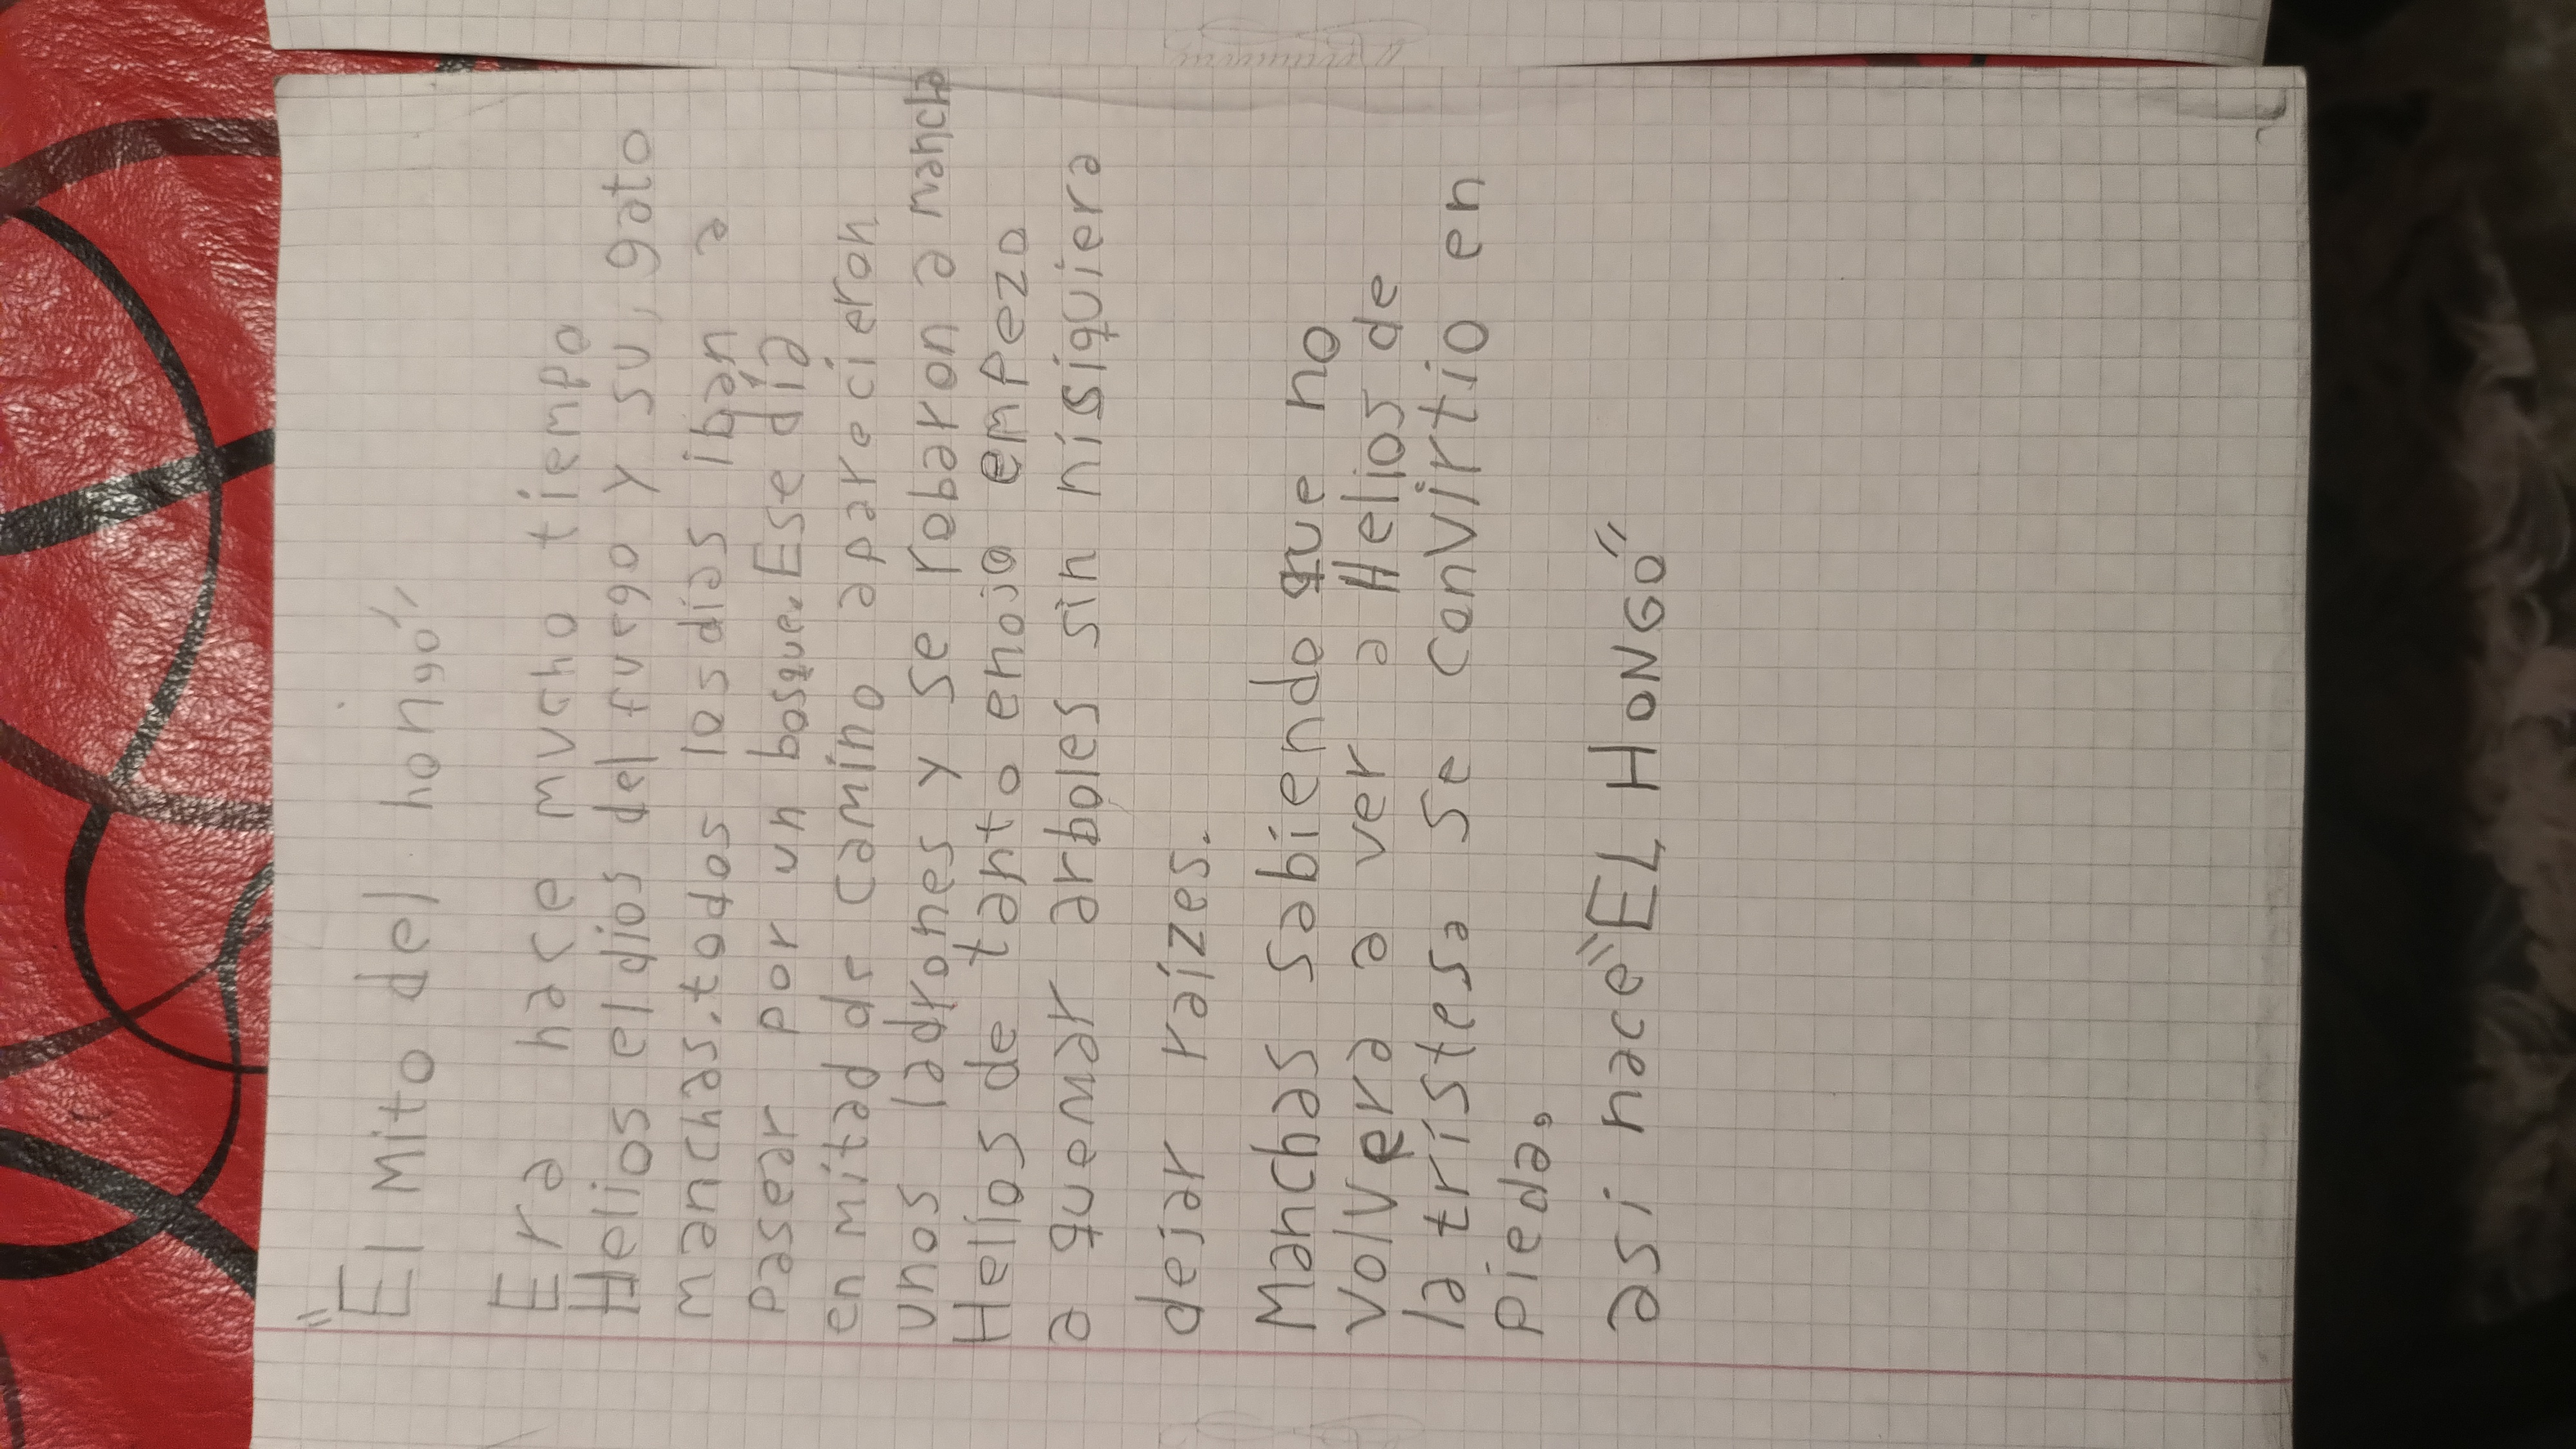 "El Mito del hongo"
Era hase mucho tiempo
Helios el dios del fuego y su, gato
manchas.todos los dias iban a
pasear por un bosque.Ese día
en mitad de camino aparecieron
unos ladrones y se robaron a mancha
Helios de tanto enojo empezo
a quemar arboles sin nisiquiera
dejar raízes.
Manchas sabiendo que no
volvera a ver a Helios de
la tristesa se convirtio en
pieda.
asi nace "EL HONGO"